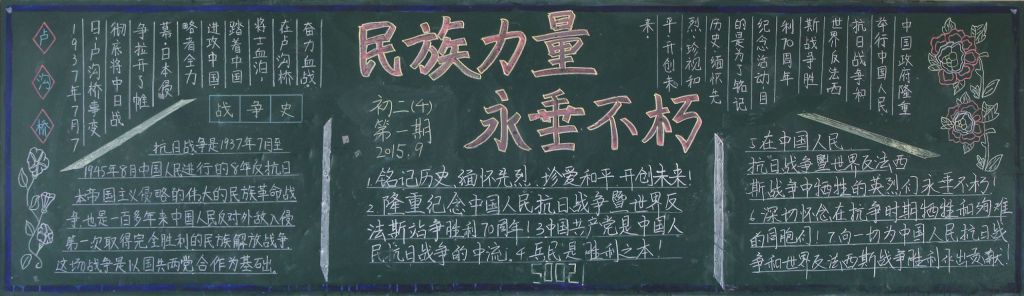 民族力量
永垂不朽
初二(4)
第一期
2015.9
卢沟桥
1937年7月7
日卢沟桥事变
彻底将中日战
争拉开了帷
幕.日本侵
略者全力
进攻中国
踏着中国
将士血泊
在卢沟桥
奋力血战
战争史
抗日战争是1937年7月至
1945年8月中国人民进行的8年反抗日
本帝国主义侵略的伟大的民族革命战
争.也是一百多年来中国人民反对外敌入侵
第一次取得完全胜利的民族解放战争
这场战争是以国共两党合作为基础.
1.铭记历史.缅怀先烈.珍爱和平.开创未来!
2.隆重纪念中国人民抗日战争暨世界反
法斯战争胜利70周年!3中国共产党是中国人
民抗日战争的中流.4.兵民是胜利之本!
5002
中国政府隆重
举行中国人民
抗日战争和
世界反法西
斯战争胜
利70周年
纪念活动.目
的是为了铭记
历史.缅怀先
烈.珍视和
平.开创未
来
5.在中国人民
抗日战争暨世界反法西
斯战争中牺牲的英烈们永垂不朽!
6.深切怀念在抗争时期牺牲和殉难
的同胞们!7.向一切为中国人民抗日战
争和世界反法西斯战争胜利作出贡献!